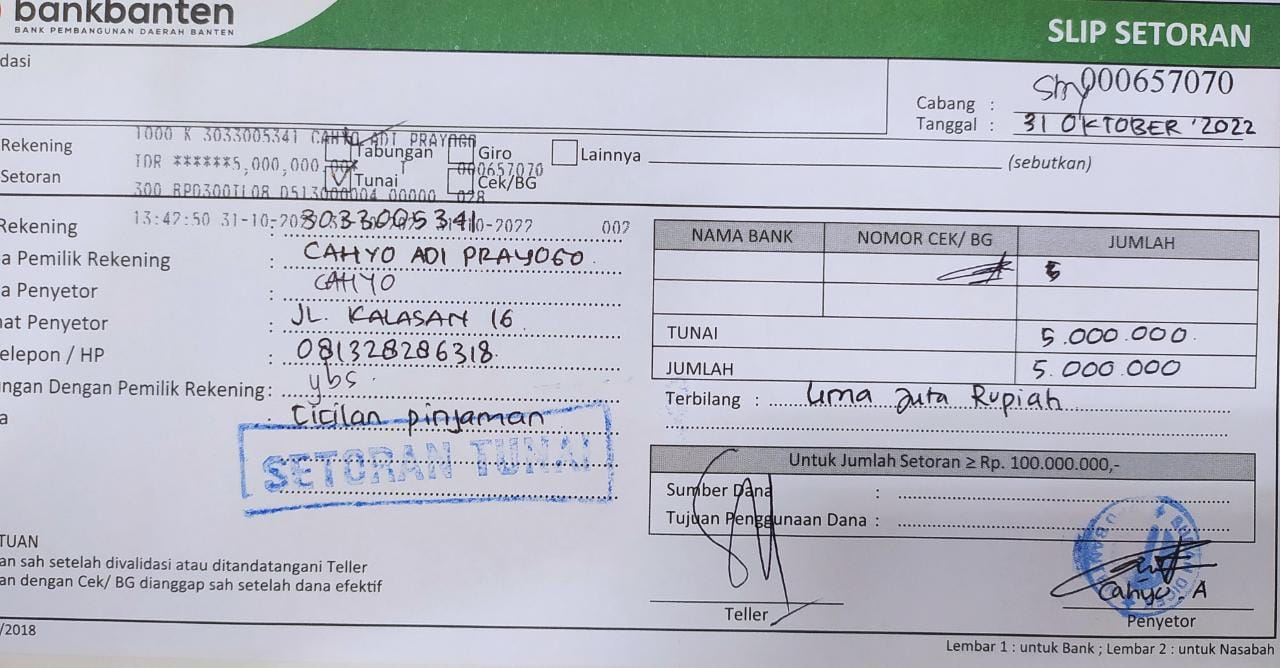 bankbanten
BANK PEMBANGUNAN DAERAH BANTEN
SLIP SETORAN
dasi
000657070
Cabang :
Tanggal : 31 OKTOBER '2022
1000 K 3033005341 CAHYO ADI PRAYOGO
Rekening Tabungan Giro Lainnya (sebutkan)
IDR ******5,000,000.00* 000657070
Setoran Tunai Cek/BG
13:42:50 31-10-2022 002
Rekening : 3033005341
a Pemilik Rekening : CAHYO ADI PRAYOGO
a Penyetor : CAHYO
at Penyetor : JL. KALASAN 16
elepon / HP : 081328286318
ngan Dengan Pemilik Rekening: ybs.
a : Cicilan pinjaman
SETORAN TUNAI
NAMA BANK NOMOR CEK/ BG JUMLAH
TUNAI 5.000.000
JUMLAH 5.000.000
Terbilang : Lima Juta Rupiah
Untuk Jumlah Setoran ≥ Rp. 100.000.000,-
Sumber Dana :
Tujuan Penggunaan Dana :
TUAN
an sah setelah divalidasi atau ditandatangani Teller
an dengan Cek/ BG dianggap sah setelah dana efektif
Teller
Cahyo. A
Penyetor
/2018
Lembar 1 : untuk Bank ; Lembar 2 : untuk Nasabah